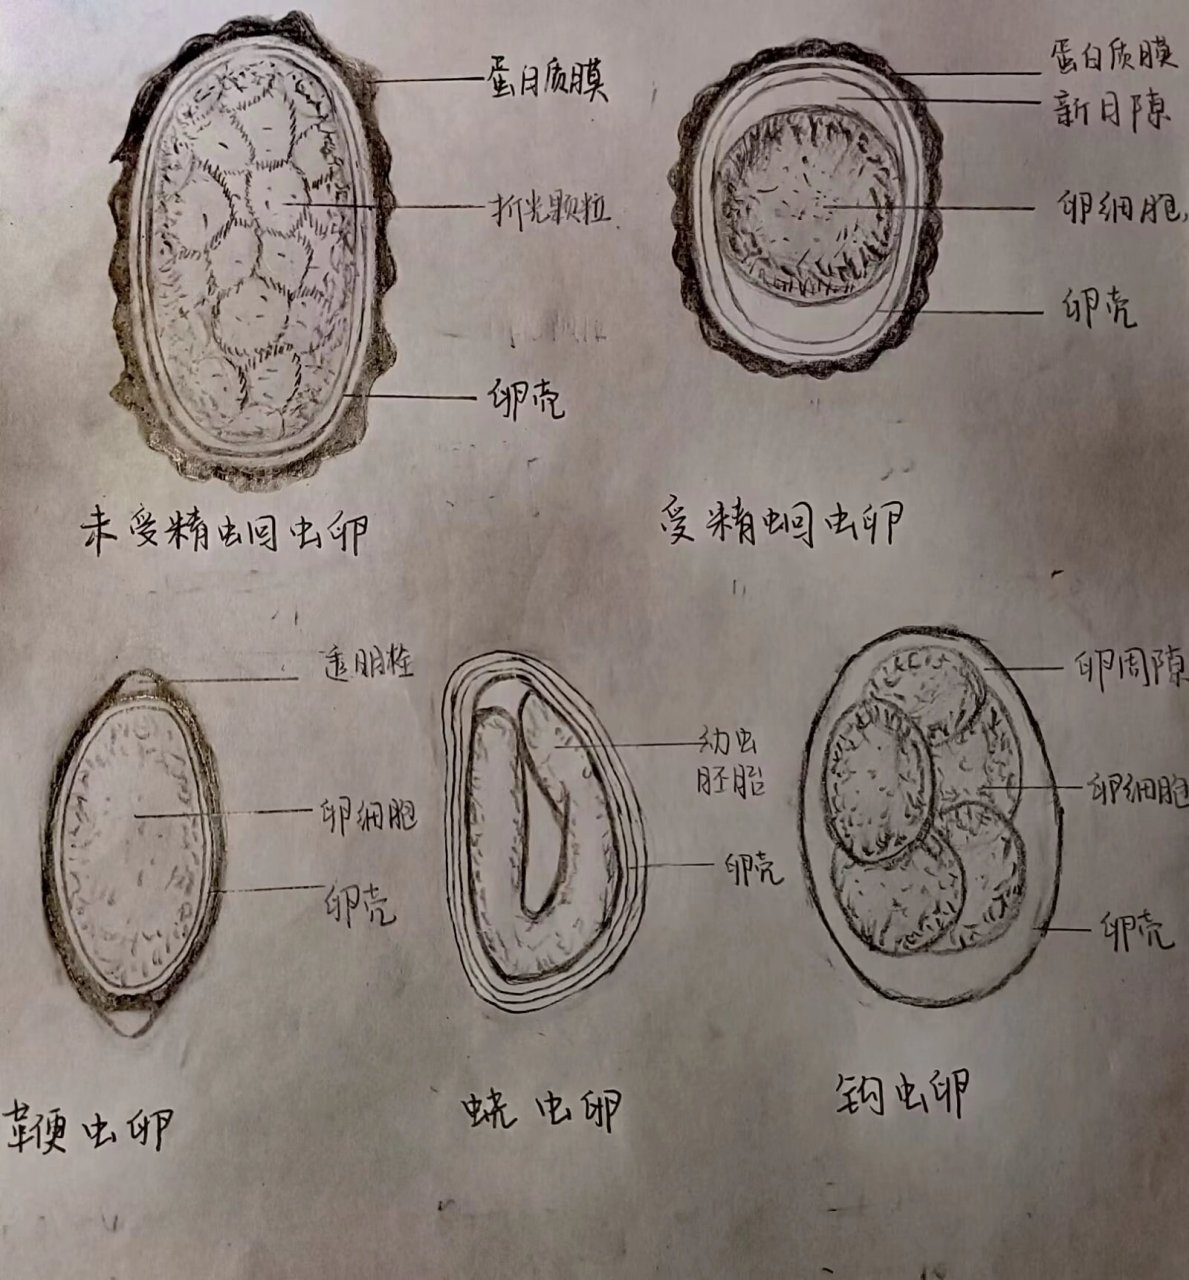 蛋白质膜
折光颗粒
卵壳
未受精蛔虫卵
蛋白质膜
新月隙
卵细胞
卵壳
受精蛔虫卵
透明栓
卵细胞
卵壳
鞭虫卵
幼虫
胚胎
卵壳
蛲虫卵
卵周隙
卵细胞
卵壳
钩虫卵